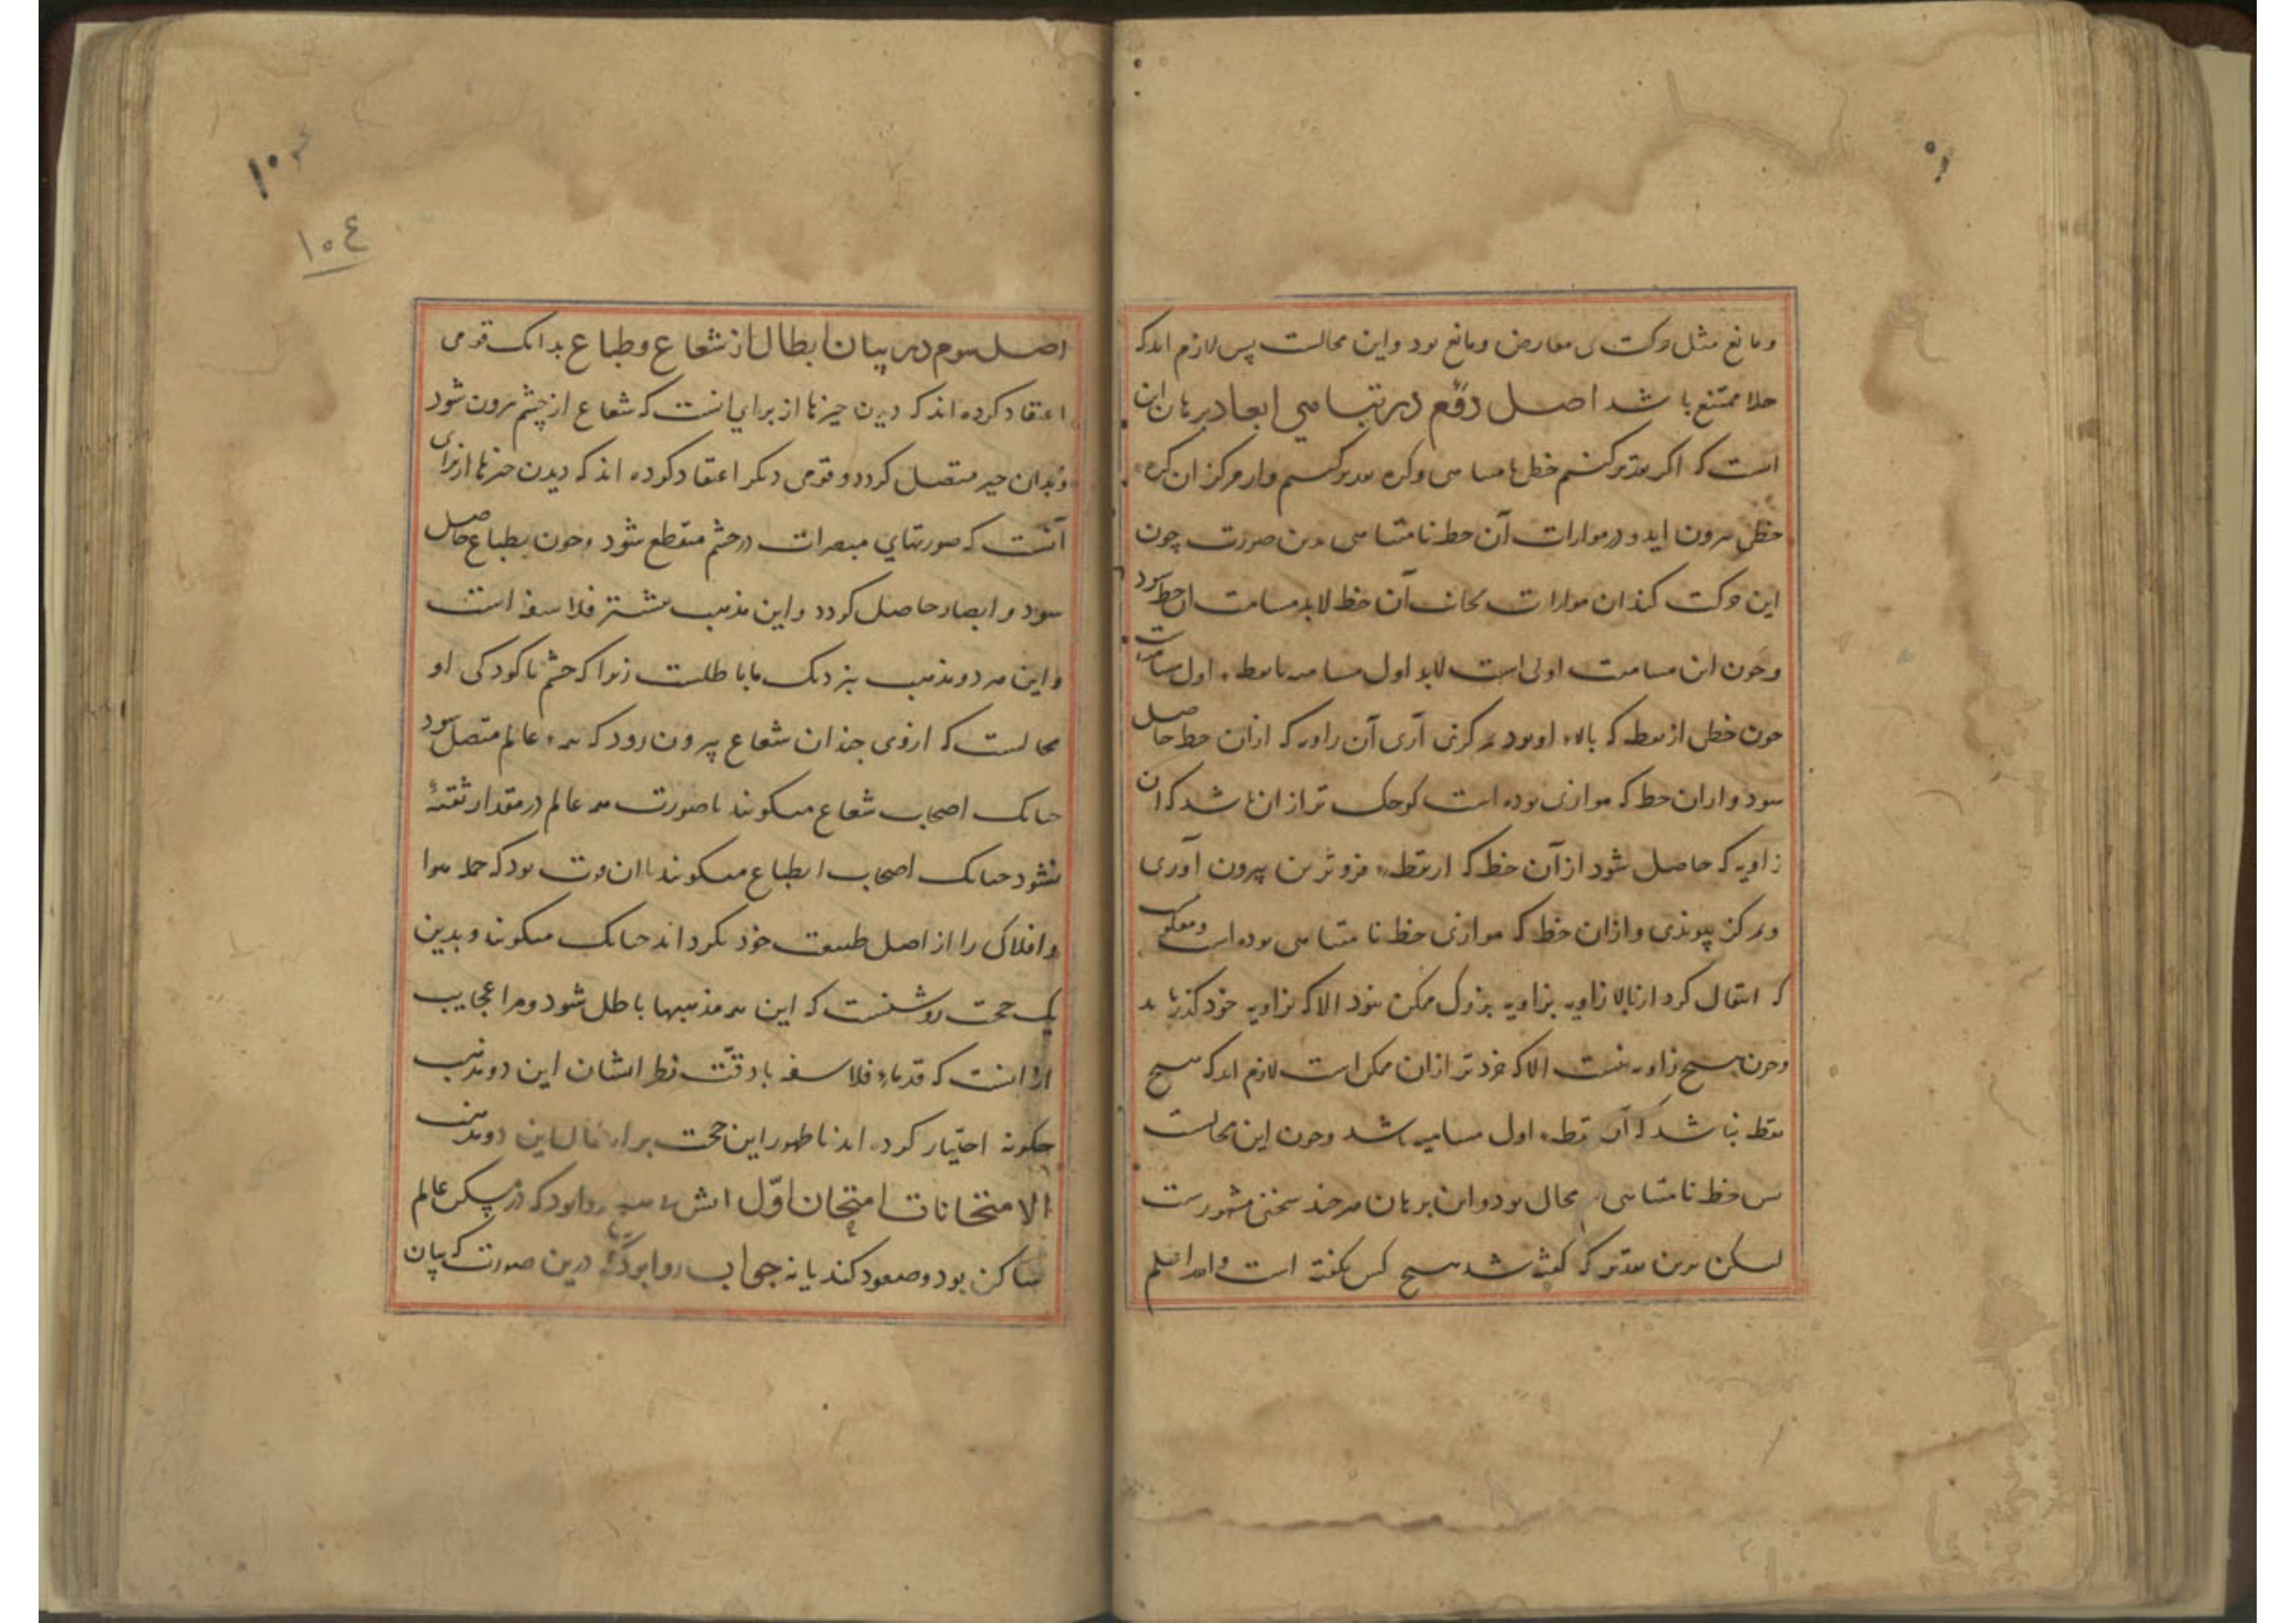 ومانع مثل حرکت بی معارض ومانع بود واین محالست پس لازم آمد که
خلا ممتنع باشد اصل دوم در تناهی ابعاد برهان این
است که اگر تقدیر کنیم خطی نامتناهی وکره تقدیر کنیم واز مرکز آن کره
خطی برون آید و در موازات آن خط نامتناهی بدین صورت چون
این حرکت کند ان موازات بجانب آن خط لابد مسامت آن خط شود
وچون این مسامت اولی است لابد اول مسامته نقطه اول مسامت
چون خطی از نقطه که بالاء او بود بمرکز آری آن زاویه که ازان خط حاصل
شود وازان خط که موازی بوده است کوچک تر ازان باشد که آن
زاویه که حاصل شود از آن خط که از نقطه فروترین بیرون آوری
وبمرکز پیوندی وازان خط که موازی خط نامتناهی بوده است
که انتقال کرد از زاویه بزاویه بزرگ ممکن نبود الا که بزاویه خرد گذر یابد
وچون هیچ زاویه نیست الا که خردتر ازان ممکن است لازم آمد که هیچ
نقطه نباشد که آن نقطه اول مسامته باشد وچون این محالست
پس خط نامتناهی محال بود واین برهان هرچند سخنی مشهورست
لیکن برین تقدیر که گفته شد هیچ کس نگفته است والله اعلم
١٠٣
١٠٤
اصل سوم در بیان ابطال از شعاع وطباع بدانک قومی
اعتقاد کرده اند که دیدن چیزها از برای انست که شعاع از چشم برون شود
وبدان چیز متصل گردد وقومی دیگر اعتقاد کرده اند که دیدن چیزها از برای
آنست که صورتهای مبصرات در چشم منقطع شود وچون بطباع حاصل
شود و ابصار حاصل گردد واین مذهب بیشتر فلاسفه است
واین هر دو مذهب بنزدیک ما باطلست زیرا که چشم با کودکی او
محالست که ازوی چندان شعاع بیرون رود که بهمه عالم متصل شود
چنانک اصحاب شعاع میگویند یا صورت همه عالم در مقدار ثقبه
شود چنانک اصحاب انطباع میگویند یا ان قوت بود که جمله هوا
وافلاک را از اصل طبیعت خود بگرداند چنانک میگویند وبدین
یک حجت روشنست که این همه مذهبها باطل شود ومرا عجایب
از انست که قدماء فلاسفه با دقت نظر ایشان این دو مذهب
چگونه اختیار کرده اند با ظهور این حجت بر ابطال این دو مذهب
الامتحانات امتحان اول آتش روا بود که در مسکن عالم
ساکن بود وصعود کند یا نه جواب روا بود که درین صورت که بیان